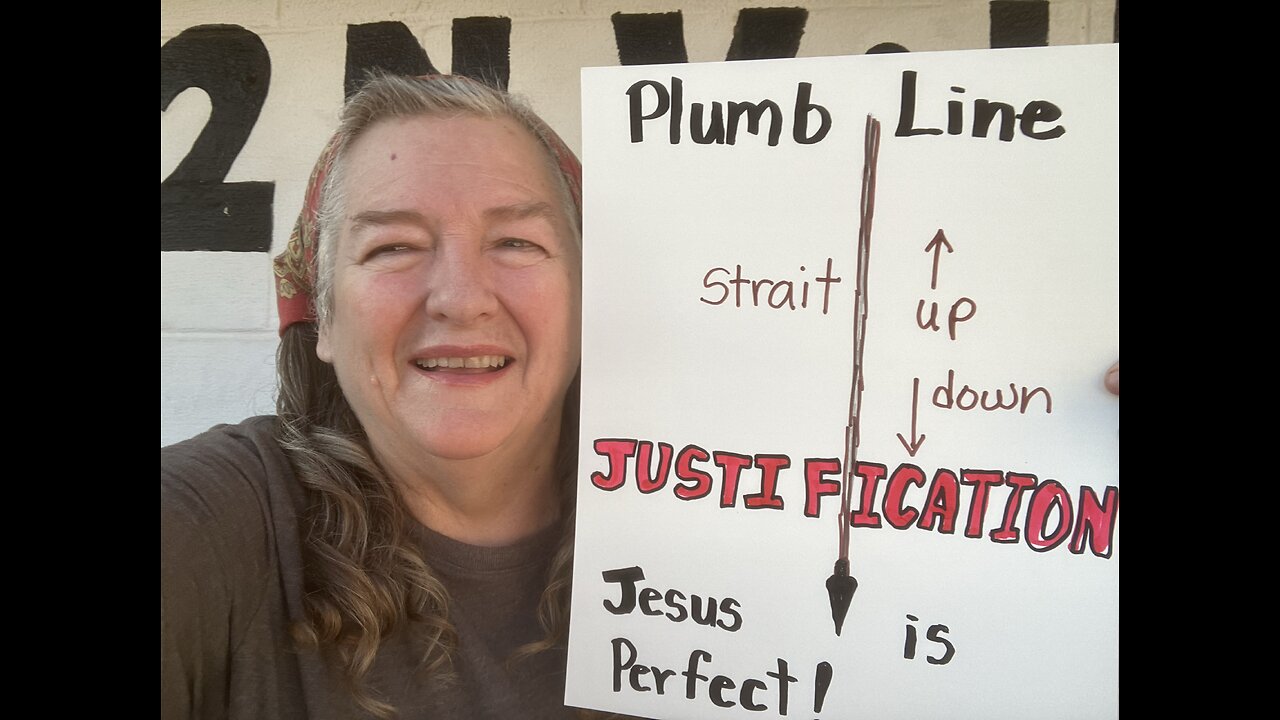 2N
Plumb Line
Strait
up
down
JUSTIFICATION
Jesus is
Perfect!